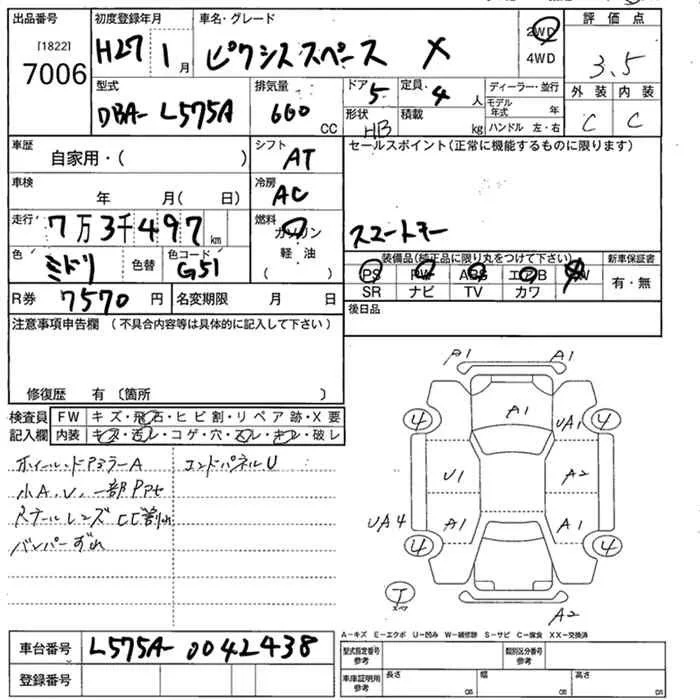 出品番号 初度登録年月 車名・グレード 評価点
[1822]
7006 H27 1月 ピクシススペース X 2WD 4WD 3.5
型式 排気量 ドア 定員 ディーラー・並行 外装 内装
DBA- L575A 660 CC 5 4人 モデル年式 年 C C
形状 HB 積載 kg ハンドル 左・右
車歴 自家用・( ) シフト AT セールスポイント(正常に機能するものに限ります)
車検 年 月( 日) 冷房 AC
走行 7万3千497km 燃料 ガソリン スマートキー
色 ミドリ 色替 色コード G51 軽油 ( ) 装備品(純正品に限り丸をつけて下さい) 新車保証書
PS PW ABS エアB AW 有・無
R券 7570円 名変期限 月 日 SR ナビ TV カワ
注意事項申告欄(不具合内容等は具体的に記入して下さい) 後日品
修復歴 有 〔箇所 〕
検査員 FW キズ・飛石・ヒビ割・リペア跡・X要
記入欄 内装 キズ・汚レ・コゲ・穴・スレ・キレ・破レ
ホイール・ドアミラーA エンドパネルU
小A、U、一部Pアセ
テールレンズCC割れ
バンパーずれ
A1 A1
4 A1 4
UA1
U1 A2
UA4 A1 A1
4 4
T
スペア
A2
A-キズ E-エクボ U-凹み W-補修跡 S-サビ C-腐食 XX-交換済
車台番号 L575A-0042438 型式指定番号参考 類別区分番号参考
登録番号 車庫証明用参考 長さ cm 幅 cm 高さ cm